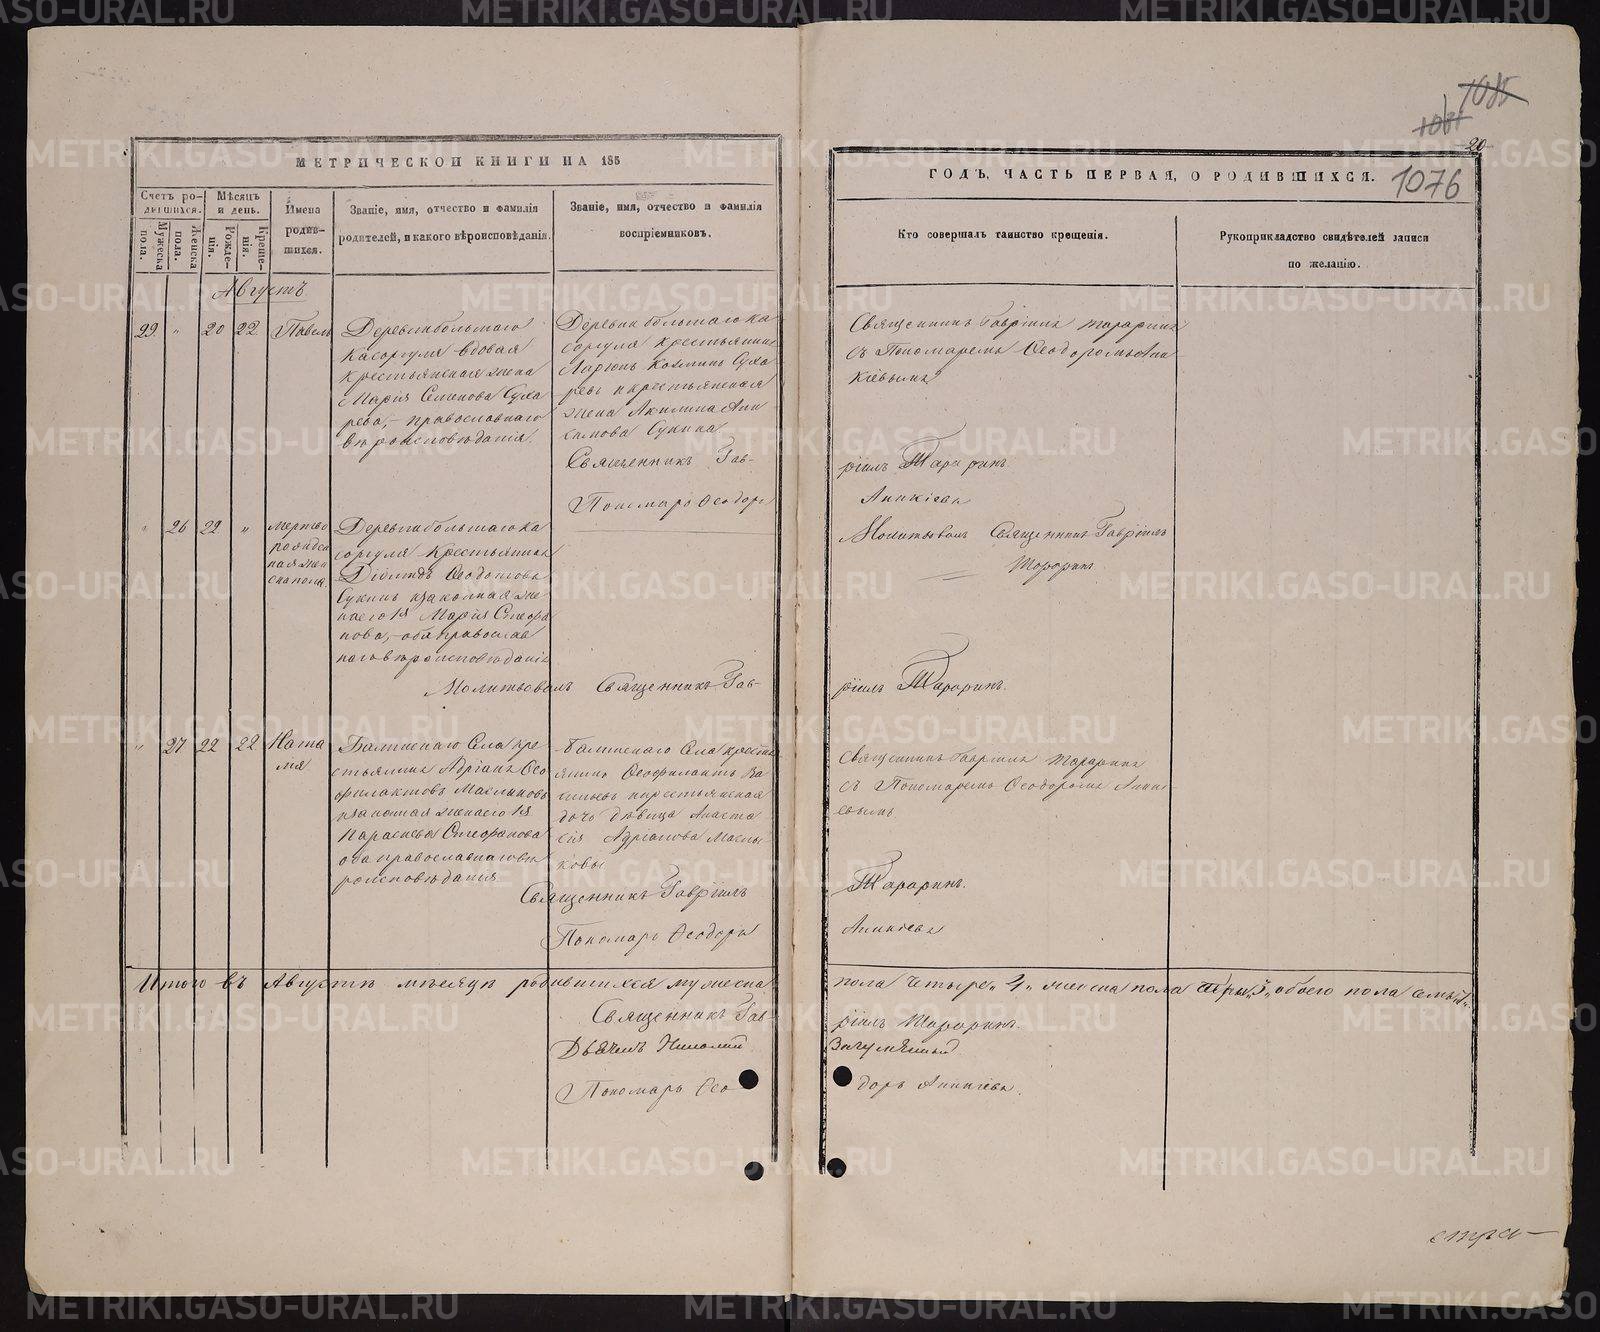 1085
1081
20
1076
МЕТРИЧЕСКОЙ КНИГИ НА 185
Счетъ ро-
дившихся.
Мужеска
пола.
Женска
пола.
Мѣсяцъ
и день.
Рожде-
нія.
Креще-
нія.
Имена
родив-
шихся.
Званіе, имя, отчество и фамилія
родителей, и какого вѣроисповѣданія.
Званіе, имя, отчество и фамилія
воспріемниковъ.
Августъ
29. " 20 22. Павелъ
Деревни большаго
Касаргуля вдовая
крестьянская жена
Марія Семенова Суха
рева,- православнаго
вѣроисповѣданія.
Деревни большаго Ка
саргуля крестьянинъ
Ларіонъ Козминъ Суха
ревъ и крестьянская
жена Акилина Ани
симова Сукина
Священникъ Гав-
Пономарь Ѳеодоръ
" 26 22 "
мертво
рожден
ная жен
ска пола.
Деревни большаго Ка
саргуля Крестьянинъ
Ѳеодотовъ
Сукинъ и законная же
на его 1я Марія Стефа
нова,- оба православ
наго вѣроисповѣданія
Молитвовалъ Священникъ Гав-
" 27 22 22
Ната
лія
села кре
стьянинъ Адріанъ Ѳео
филактовъ Маслыковъ
и законная жена его 1я
Параскева Стефанова
оба православнаго вѣ
роисповѣданія.
села кресть
янинъ Ѳеофилактъ Ва
сильевъ и крестьянская
дочь дѣвица Анаста
сія Адріанова Маслы
ковы
Священникъ Гавріилъ
Пономарь Ѳеодоръ
Итого въ Августѣ мѣсяцѣ родившихся мужеска
Священникъ Гав-
Дьячекъ Николай
Пономарь Ѳео
ГОДЪ, ЧАСТЬ ПЕРВАЯ, О РОДИВШИХСЯ.
Кто совершалъ таинство крещенія.
Рукоприкладство свидѣтелей записи
по желанію.
Священникъ Гавріилъ Тараринъ
съ Пономаремъ Ѳеодоромъ Ани
кіевымъ
ріилъ Тараринъ.
Аникіевъ
Молитвовалъ Священникъ Гавріилъ
Тараринъ
ріилъ Тараринъ.
Священникъ Гавріилъ Тараринъ
съ Пономаремъ Ѳеодоромъ Аникі
евымъ
Тараринъ.
Аникіевъ
пола четыре „4„ женска пола три „3„ обоего пола семь „7„
ріилъ Тараринъ.
доръ Аникіевъ.